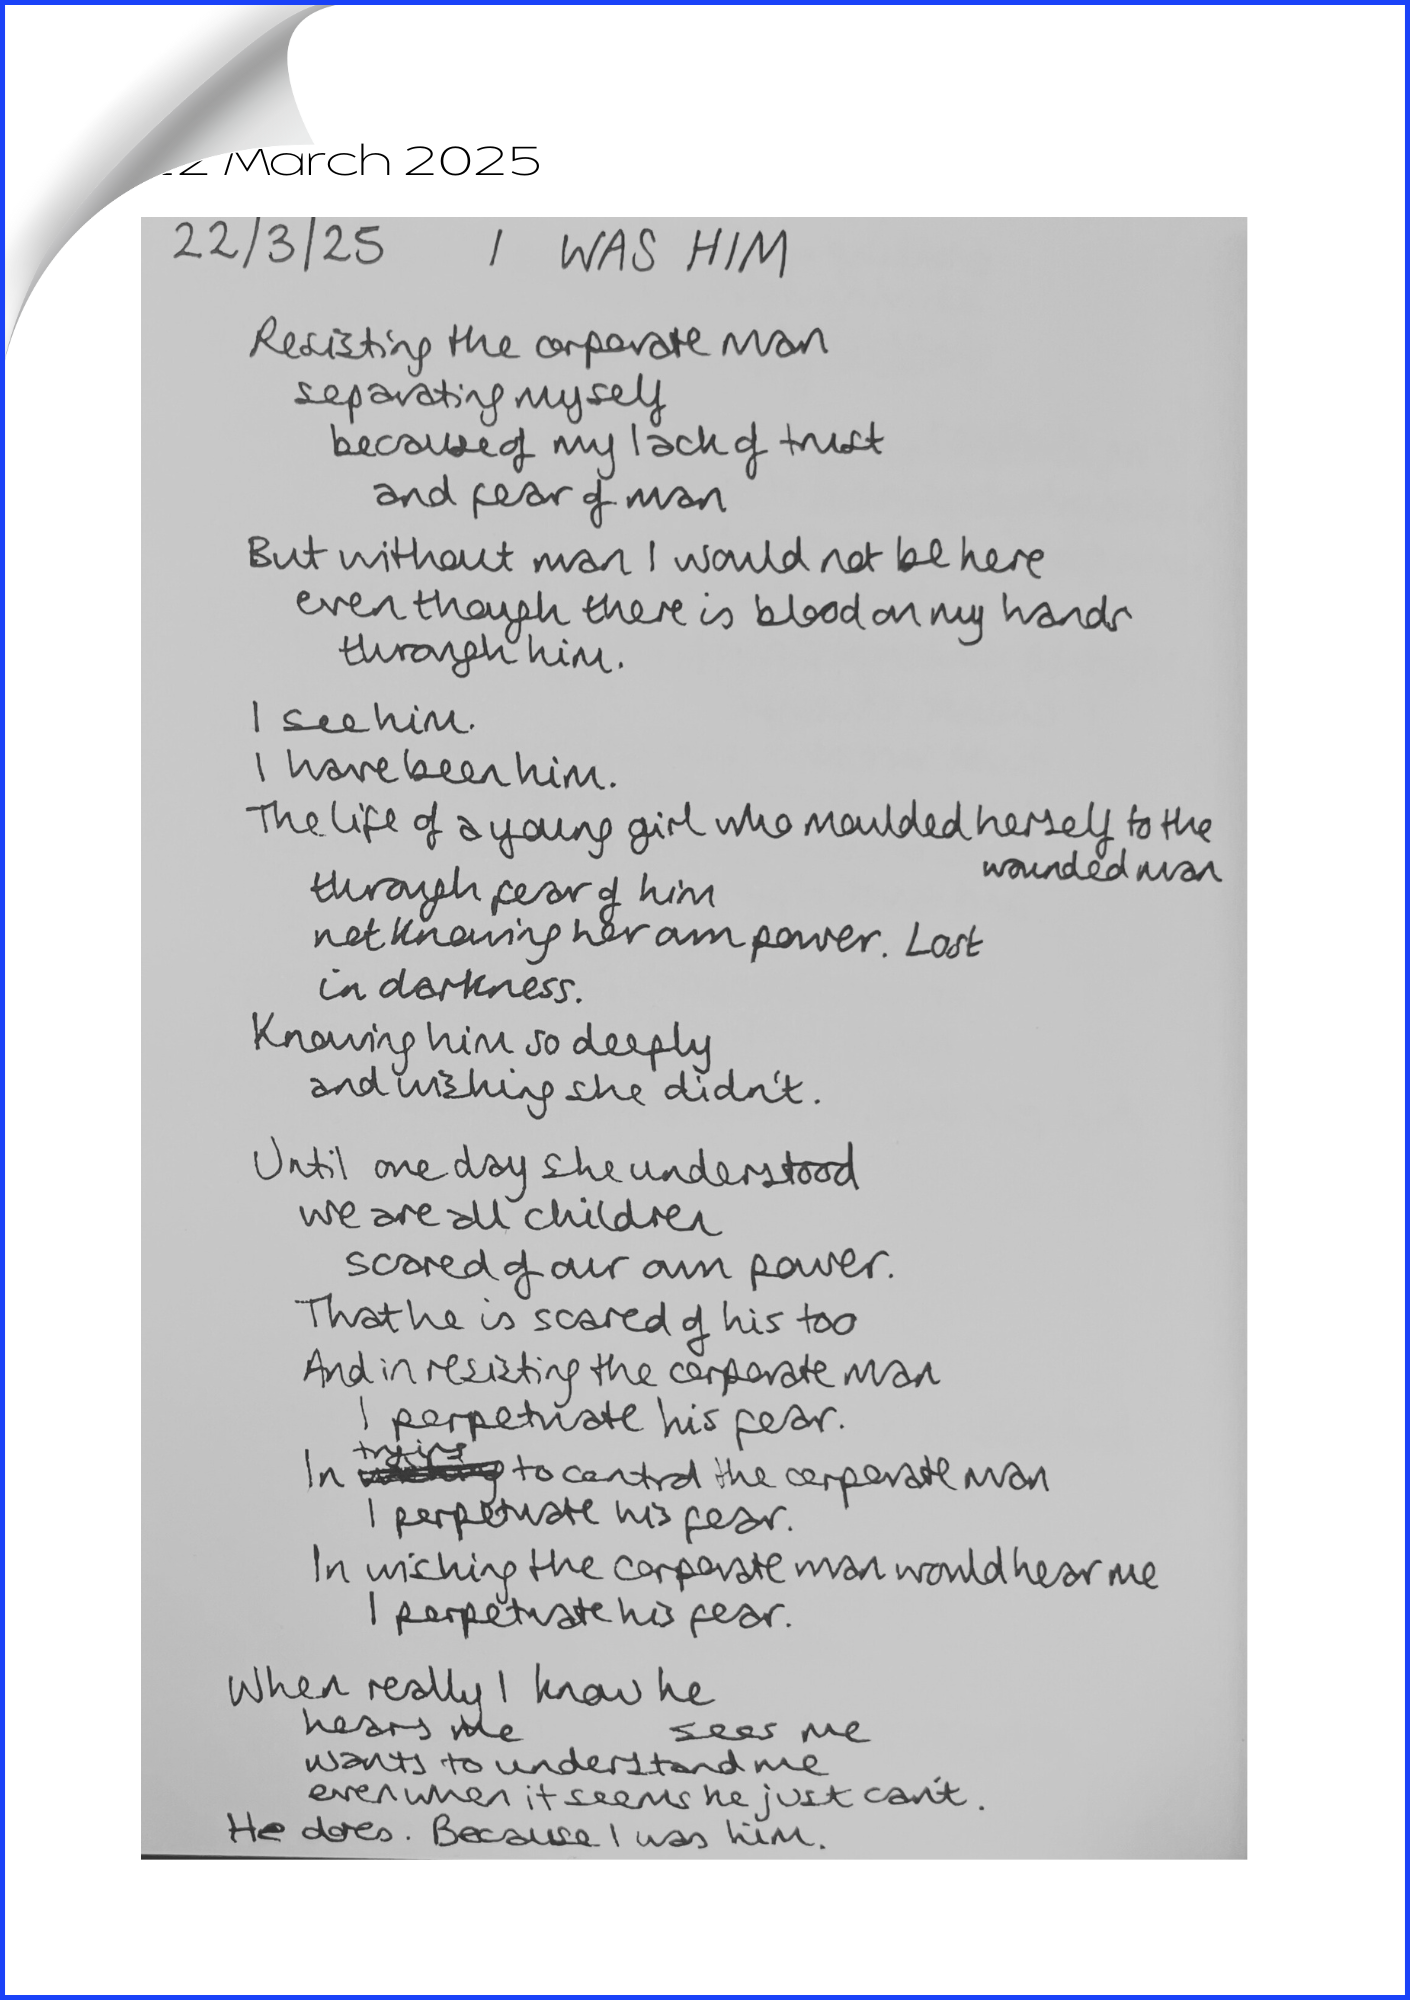 22 March 2025
22/3/25 I WAS HIM
Resisting the corporate man
separating myself
because of my lack of trust
and fear of man
But without man I would not be here
even though there is blood on my hands
through him.
I see him.
I have been him.
The life of a young girl who moulded herself to the
wounded man
through fear of him
not knowing her own power. Lost
in darkness.
Knowing him so deeply
and wishing she didn't.
Until one day she understood
we are all children
scared of our own power.
That he is scared of his too
And in resisting the corporate man
I perpetuate his fear.
In trying to control the corporate man
I perpetuate his fear.
In wishing the corporate man would hear me
I perpetuate his fear.
When really I know he
hears me sees me
wants to understand me
even when it seems he just can't.
He does. Because I was him.